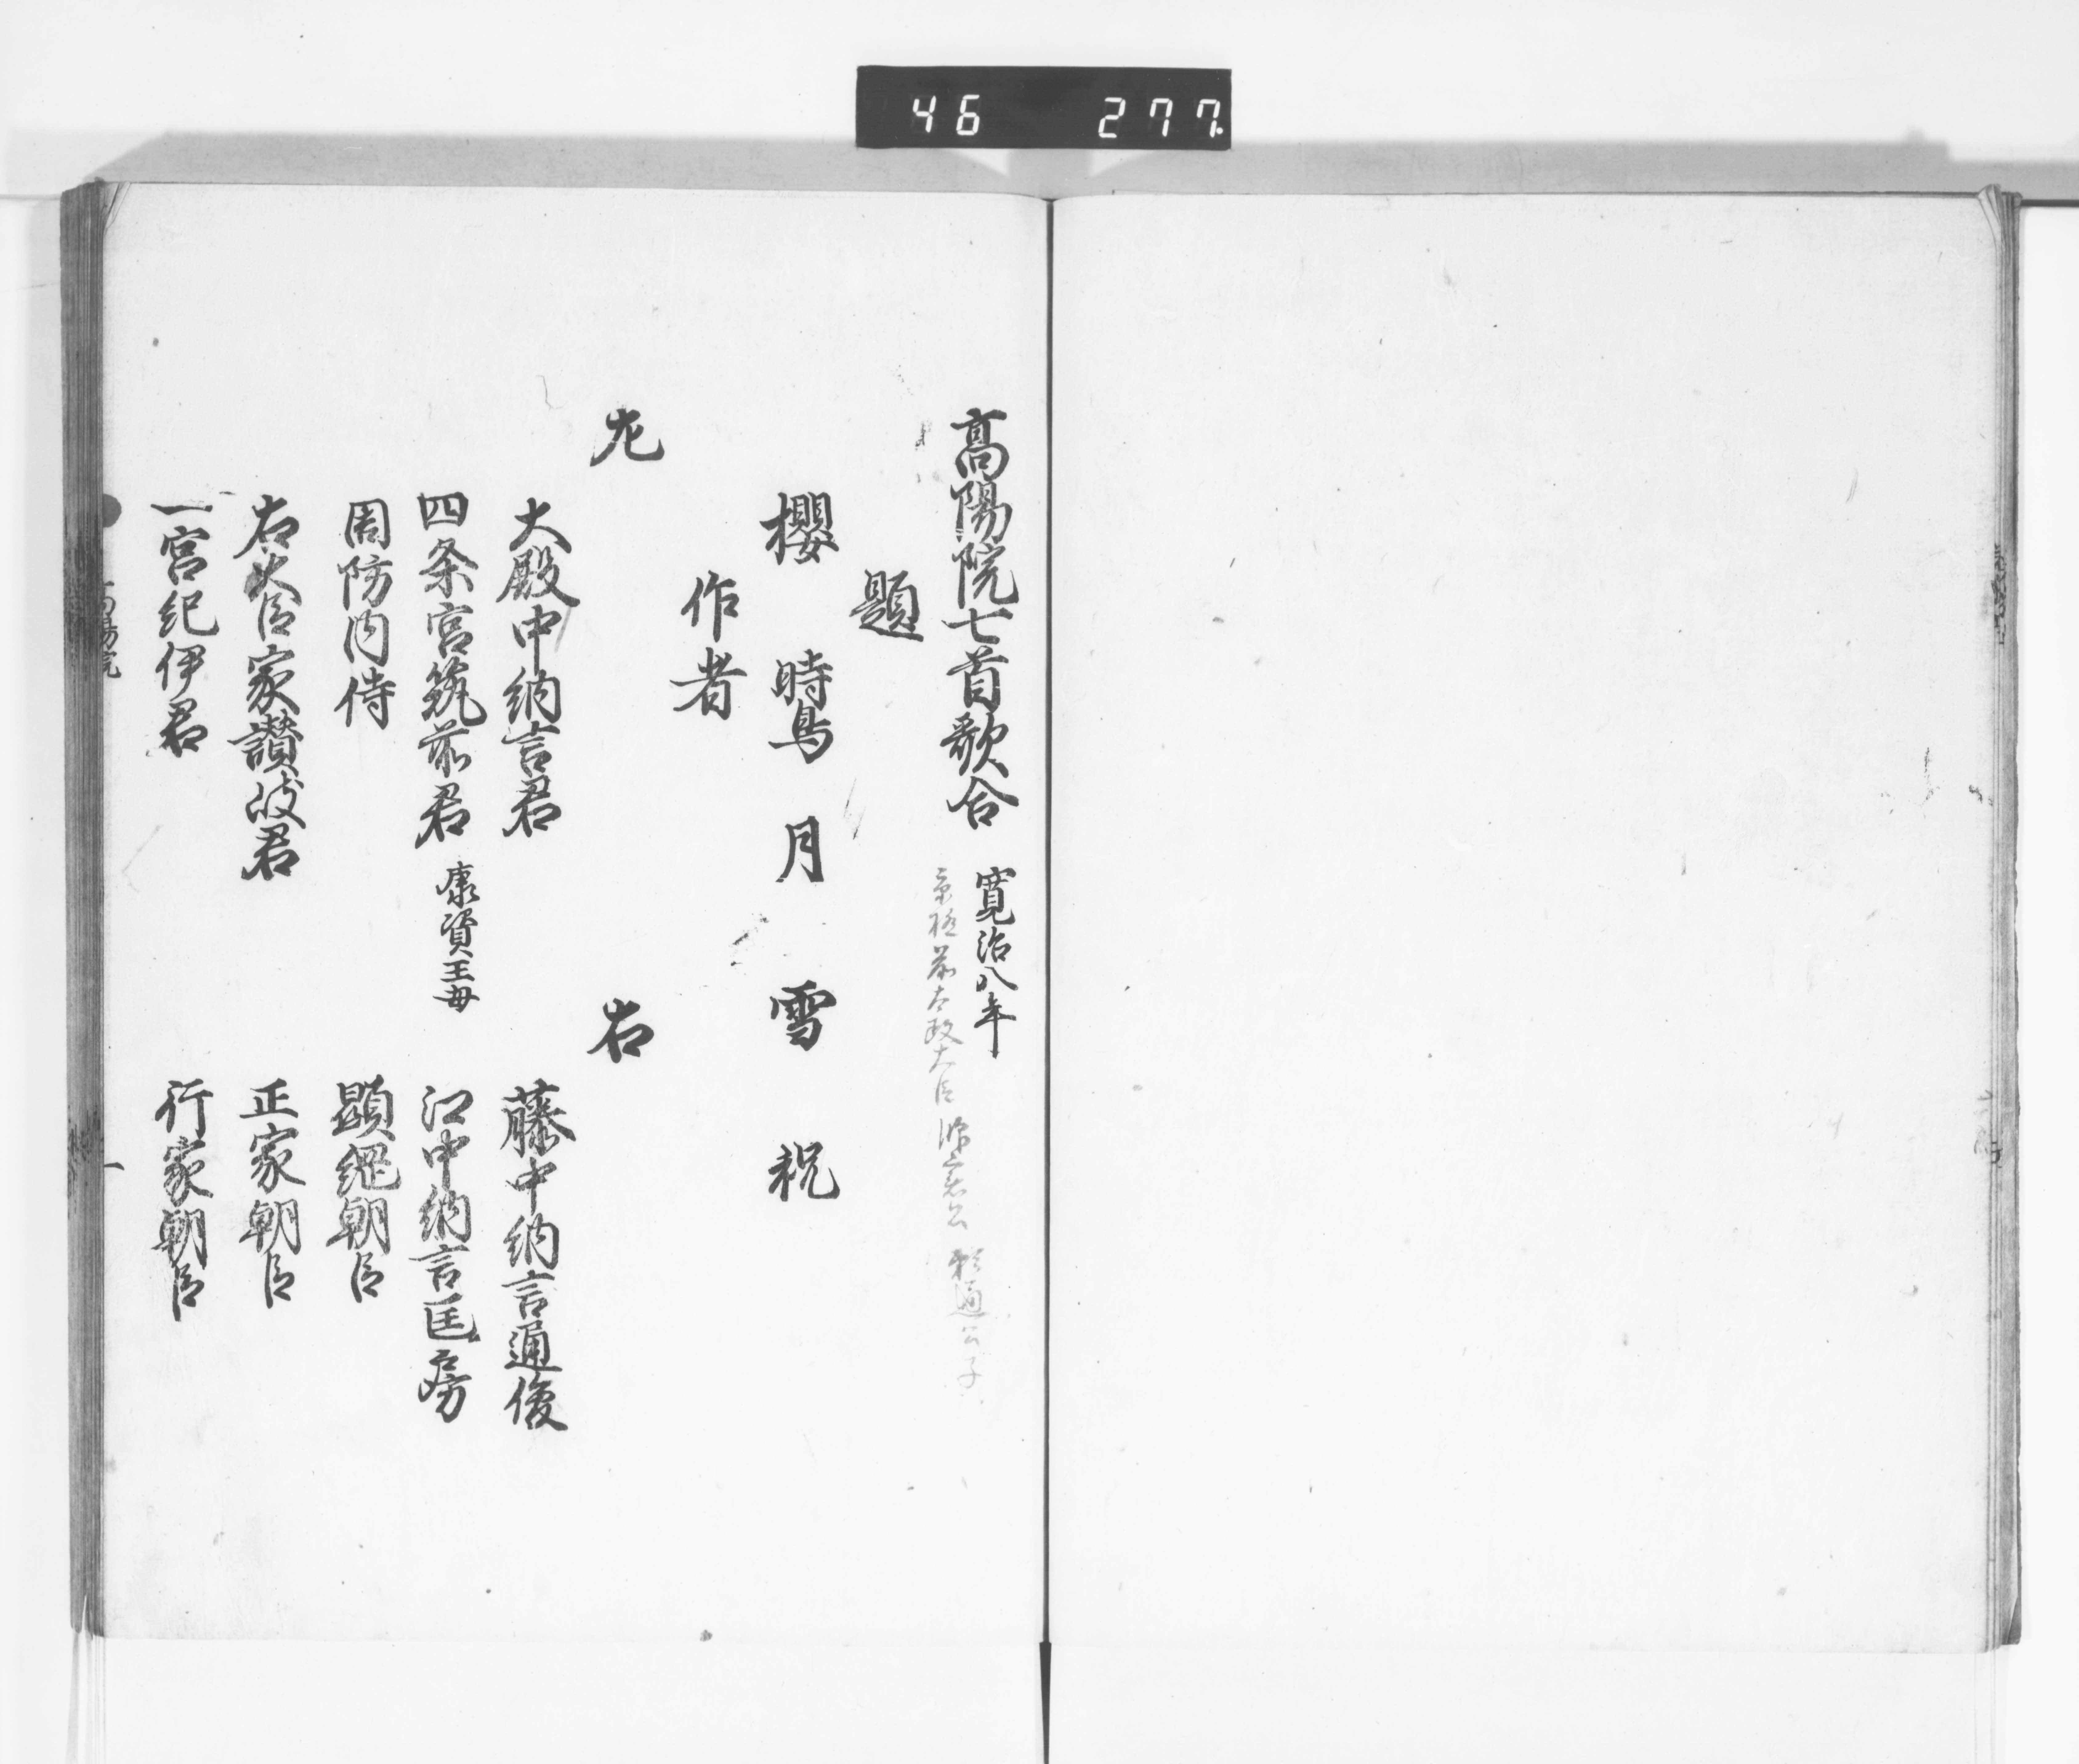 46 277
高陽院七首歌合 寛治八年
京極前太政大臣 師実公 頼通公子
題
櫻 時鳥 月 雪 祝
作者
左 右
大殿中納言君 藤中納言通俊
四条宮筑前君 康資王母 江中納言匡房
周防内侍 顕綱朝臣
右大臣家讃岐君 正家朝臣
一宮紀伊君 行家朝臣
高陽院 一